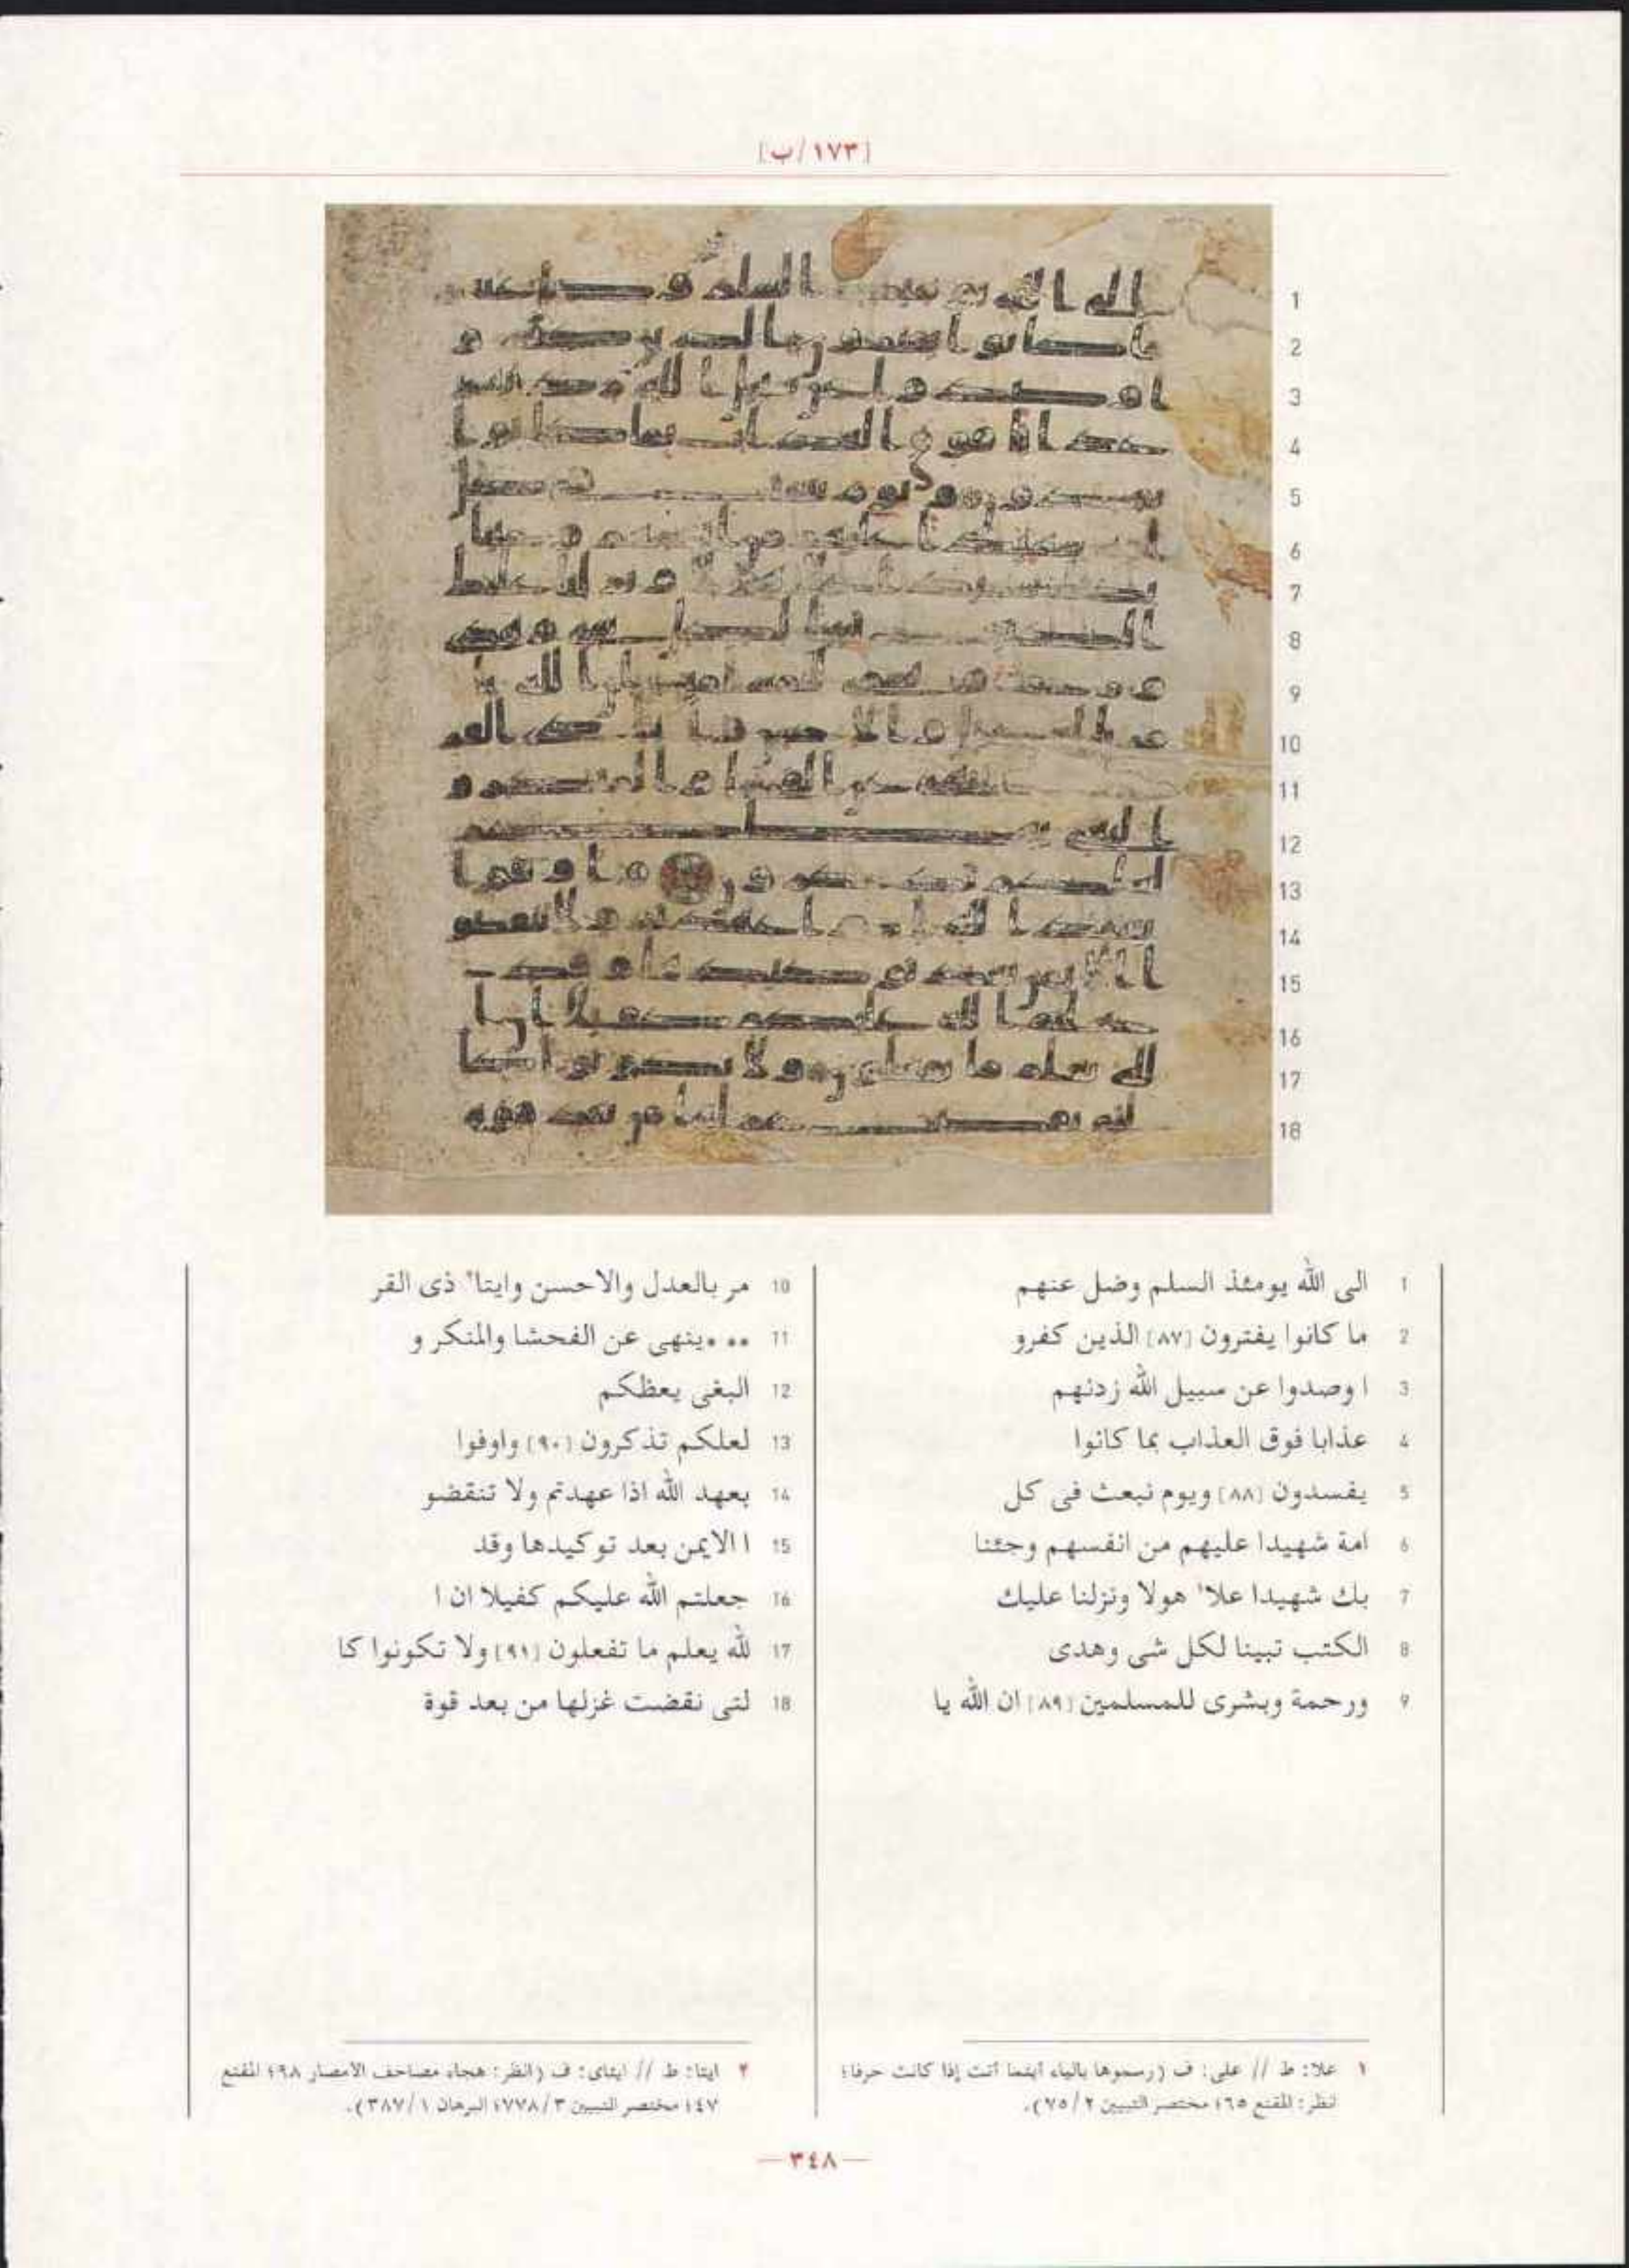 [١٧٣/ب]
1
2
3
4
5
6
7
8
9
10
11
12
13
14
15
16
17
18
1 الى الله يومئذ السلم وضل عنهم
2 ما كانوا يفترون [٨٧] الذين كفرو
3 ا وصدوا عن سبيل الله زدنهم
4 عذابا فوق العذاب بما كانوا
5 يفسدون [٨٨] ويوم نبعث فى كل
6 امة شهيدا عليهم من انفسهم وجئنا
7 بك شهيدا علا١ هولا ونزلنا عليك
8 الكتب تبينا لكل شى وهدى
9 ورحمة وبشرى للمسلمين [٨٩] ان الله يا
10 مر بالعدل والاحسن وايتا٢ ذى القر
11 •• •ينهى عن الفحشا والمنكر و
12 البغى يعظكم
13 لعلكم تذكرون [٩٠] واوفوا
14 بعهد الله اذا عهدتم ولا تنقضو
15 ا الايمن بعد توكيدها وقد
16 جعلتم الله عليكم كفيلا ان ا
17 لله يعلم ما تفعلون [٩١] ولا تكونوا كا
18 لتى نقضت غزلها من بعد قوة
١ علا: ط // على: ف (رسموها بالياء أينما أتت إذا كانت حرفا؛
انظر: المقنع ٦٥؛ مختصر التبيين ٧٥/٢).
٢ ايتا: ط // ايتاى: ف (انظر: هجاء مصاحف الأمصار ٩٨؛ المقنع
٤٧؛ مختصر التبيين ٧٧٨/٣؛ البرهان ٣٨٧/١).
— ٣٤٨ —